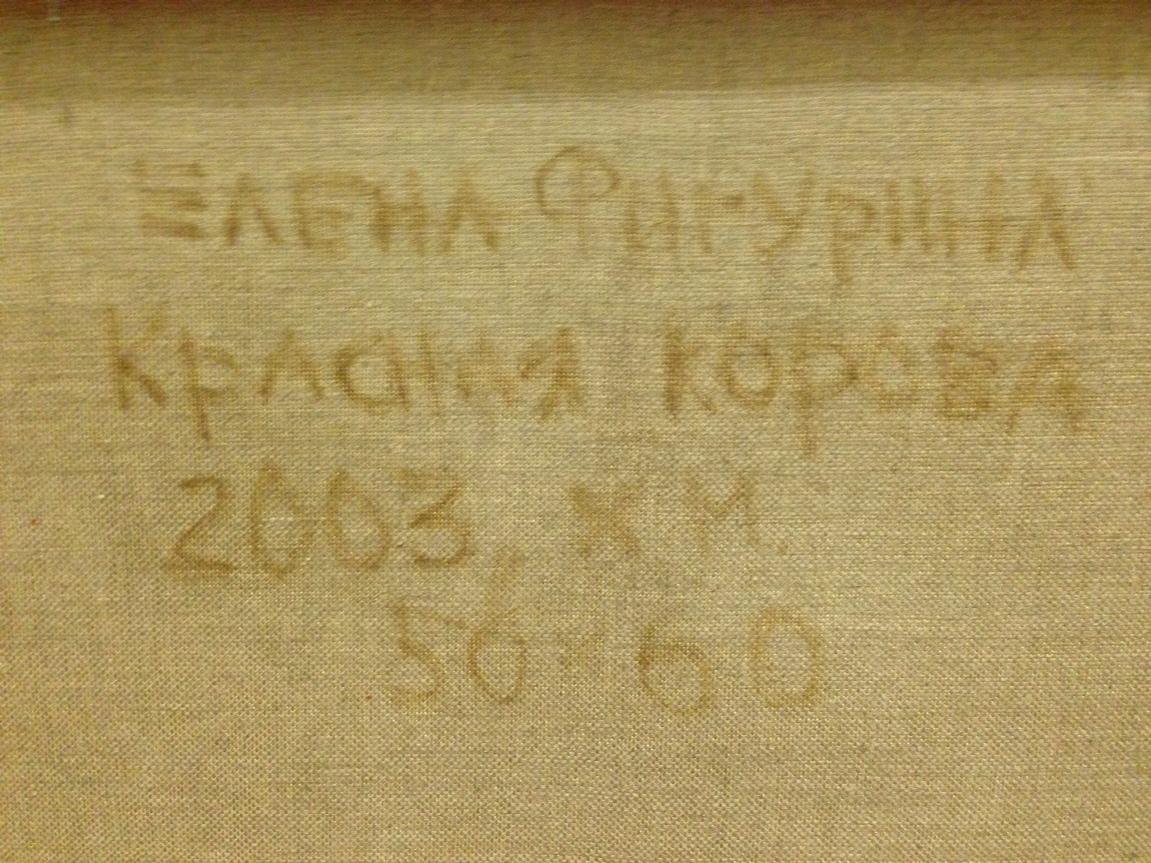 Елена Фигурина
Красная корова
2003, х.м.
50×60